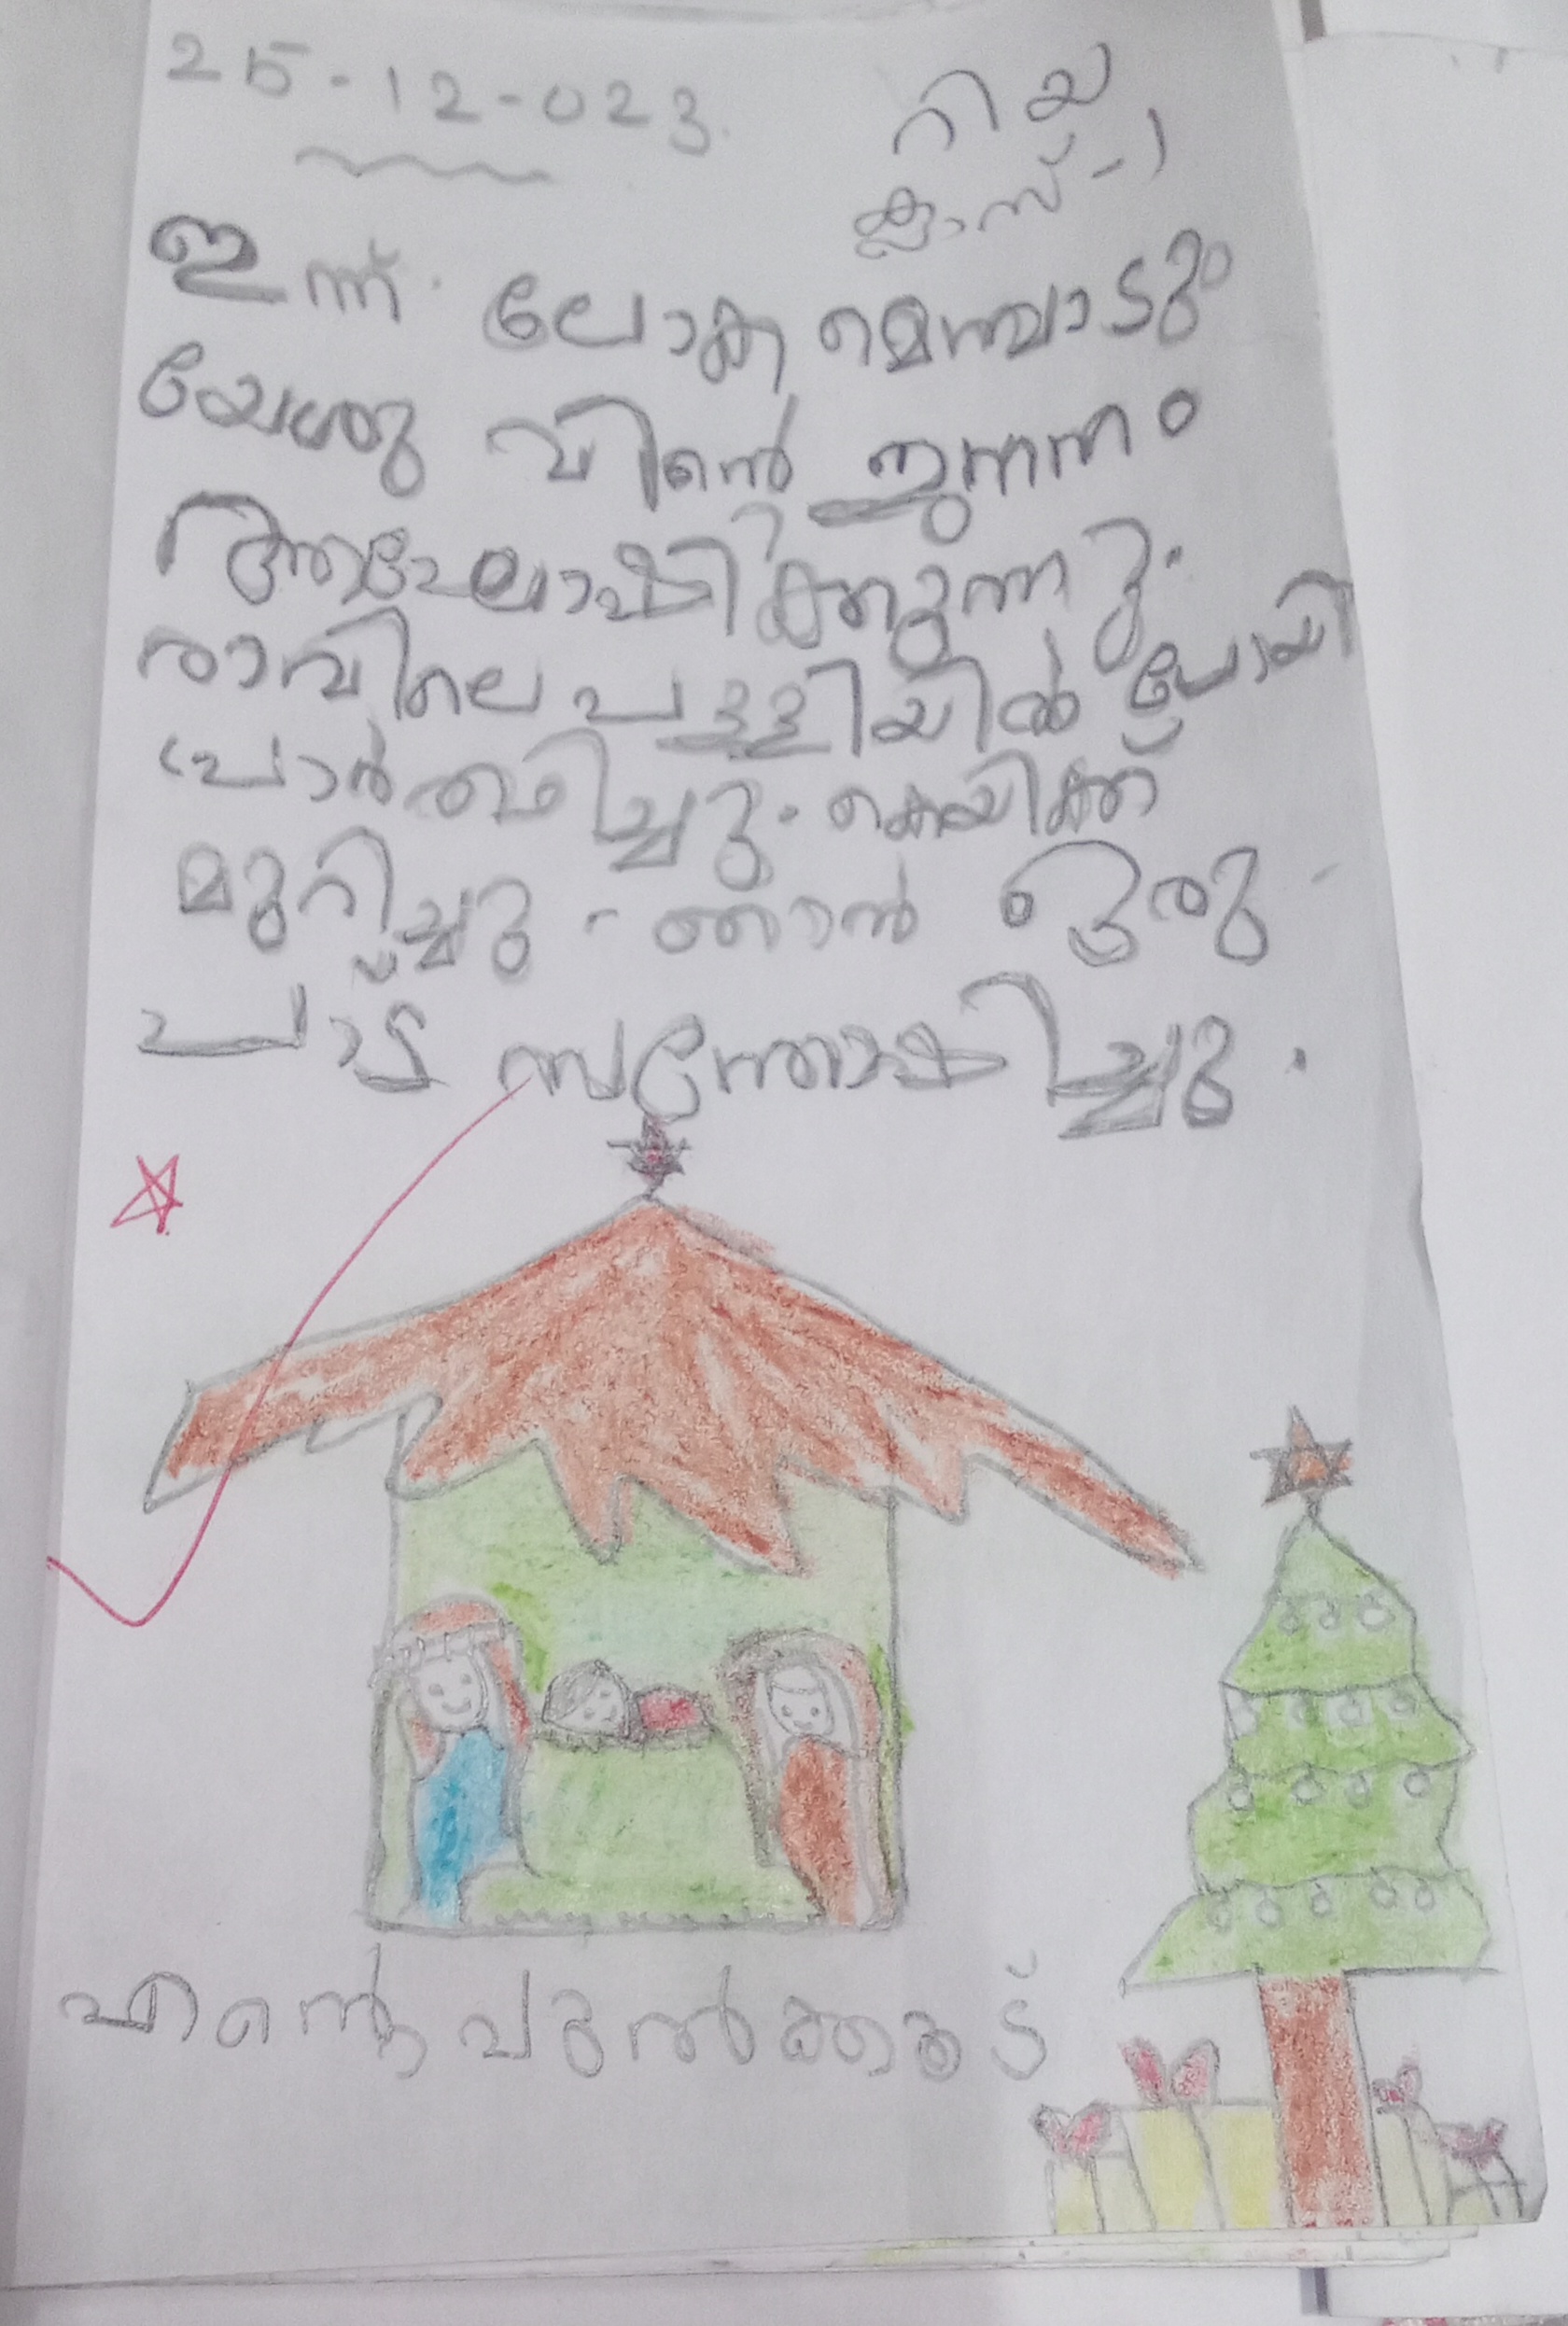 25-12-023.
റിയ
ക്ലാസ്-1
ഇന്ന് ലോക മെമ്പാടും
യേശു വിന്റെ ജനനം
ആഘോഷിക്കുന്നു.
രാവിലെ പള്ളിയിൽ പോയി
പ്രാർത്ഥിച്ചു. കെയിക്ക്
മുറിച്ചു. ഞാൻ ഒരു
പാട് സന്തോഷിച്ചു.
എന്റെ പുൽക്കൂട്